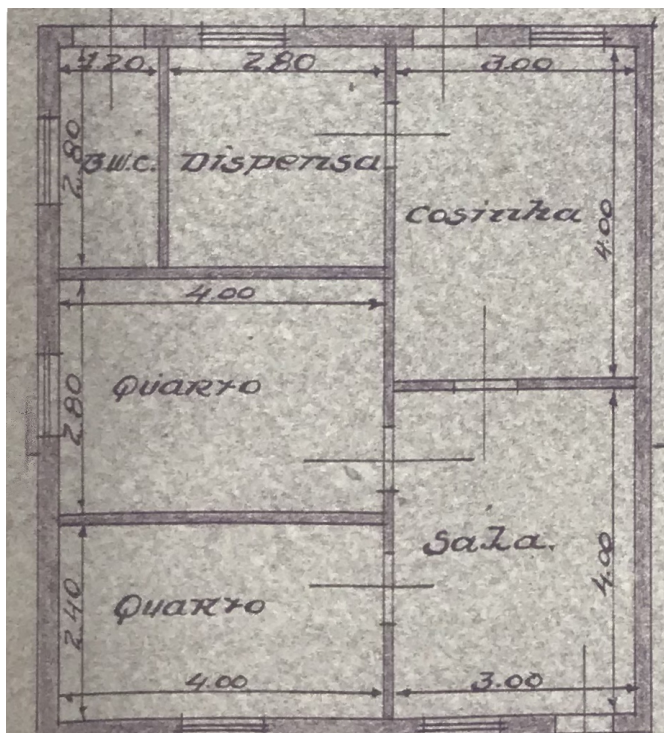 1.20
2.80
3.00
2.80
B.W.C.
Dispensa
Cosinha
4.00
4.00
Quarto
2.80
Sala.
4.00
Quarto
2.40
4.00
3.00